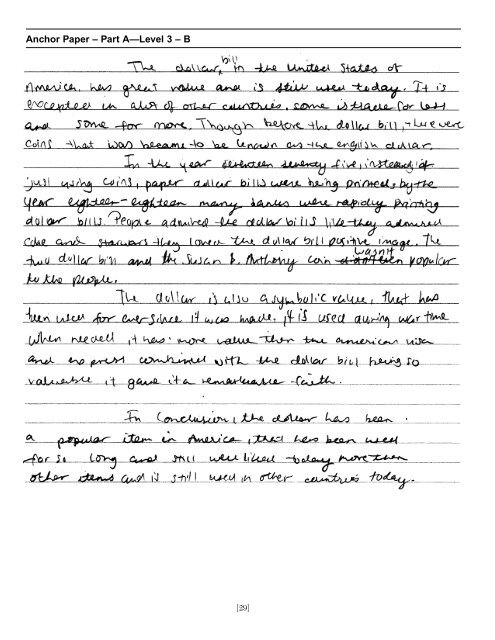 Anchor Paper – Part A—Level 3 – B
The dollar, bill in the United States of
America, has great value and is still used today. It is
excepted in alot of other countries, some is trade for less
and some for more. Though before the dollar bill, there were
coins that was became to be known as the english dollar.
In the year seventeen seventy five, instead of
just using coins, paper dollar bills were being printed, by the
year eighteen-eighteen many banks were rapidly printing
dollar bills. People admired the dollar bills like they admired
coke and starwars they loved the dollar bill positive image. The
two dollar bill and the Susan B. Anthony coin wasn't popular
to the people.
The dollar is also a symbolic value, that has
been used for ever since it was made. It is used during war time
when needed, it has more value then the american
and express combined with the dollar bill being so
valuable it gave it a remarkable faith.
In conclusion, the dollar has been
a popular item in America, that has been used
for so long and still well liked today more than
other items and is still used in other countries today.
[29]